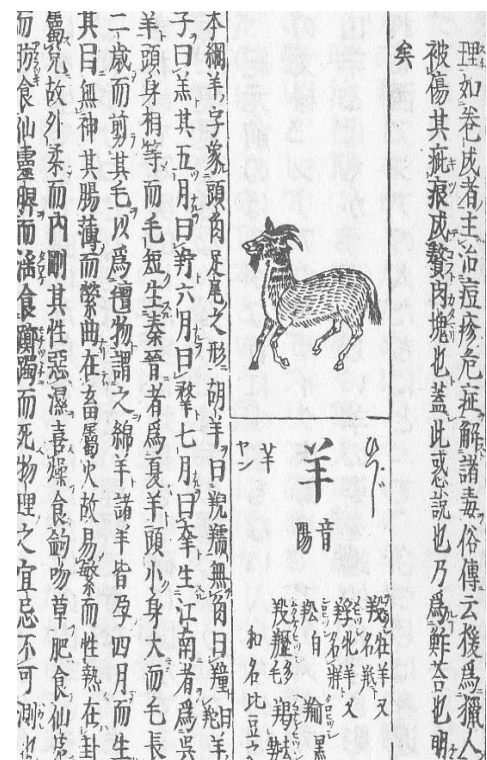 理如卷成者主治痘疹危症解諸毒俗傳云後爲獵人
被傷其疵痕成贅肉塊也蓋此惑說也乃爲鮓荅也明
矣
ひつじ
羊
音陽
羊
ヤン
牡羊又名羝
牝羊又名
白
羭黒
多毛
和名比豆之
本綱羊字象頭角足尾之形胡羊曰羺無角曰曰羊
子曰羔其五月曰羜六月曰七月曰羍生江南者爲吳
羊頭身相等而毛短生秦晉者爲夏羊頭小身大而毛長
二歲而剪其毛以爲氊物謂之綿羊諸羊皆孕四月而生
其目無神其腸薄而縈曲在畜屬火故易繁而性熱在卦
屬兌故外柔而內剛其性惡濕喜燥食鉤吻草肥食仙茅
而肪食仙靈脾而淫食躑躅而死物理之宜忌不可測也